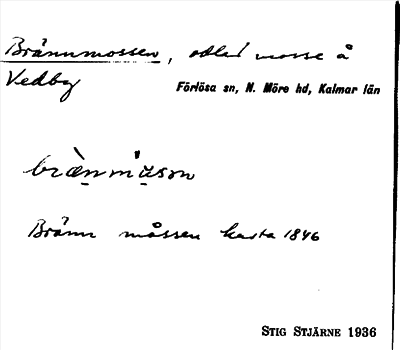 Brännmossen, odlad mosse å
Vedby
Förlösa sn, N. Möre hd, Kalmar län
bræ̀nmɯsɷn
Bränn måssen karta 1846
STIG STJÄRNE 1936